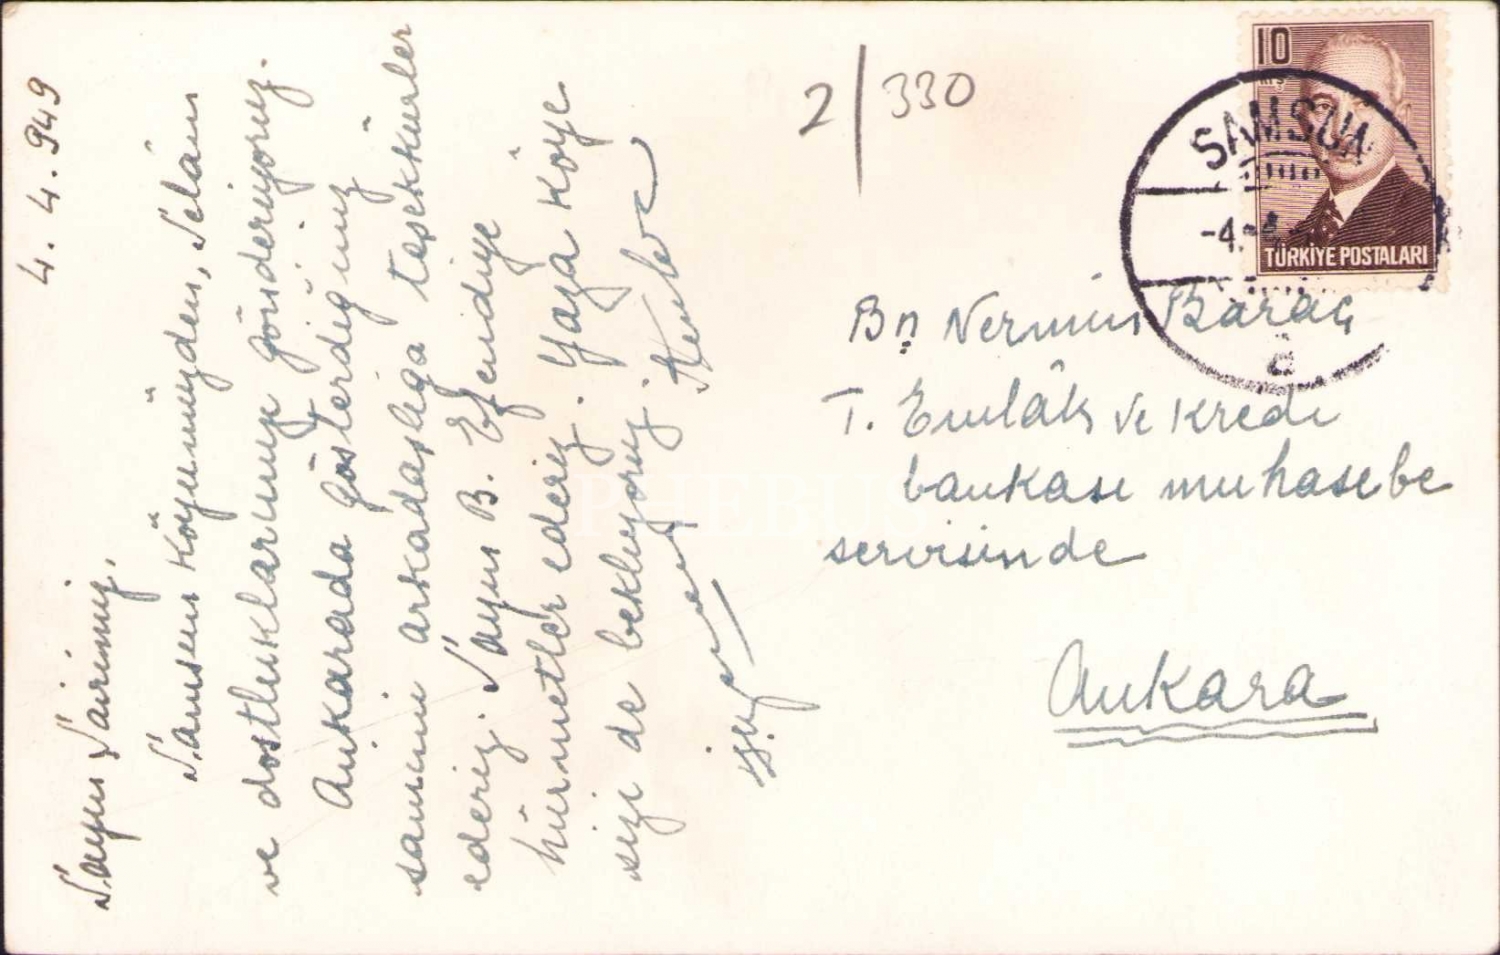 4. 4. 949
Sayın Şairimiz,
Samsun Köyümüzden, Selâm
ve dostluklarımızı gönderiyoruz.
Ankarada gösterdiğiniz
samimi arkadaşlığa teşekkürler
ederiz. Sayın B. Efendiye
hürmetler ederiz. Yaza köye
sizi de bekliyoruz.
2/330
10
SAMSUN
-4.-4
TÜRKİYE POSTALARI
a
Bn Nermin Baraç
T. Emlâk ve Kredi
bankası muhasebe
servisinde
Ankara
PHEBUS